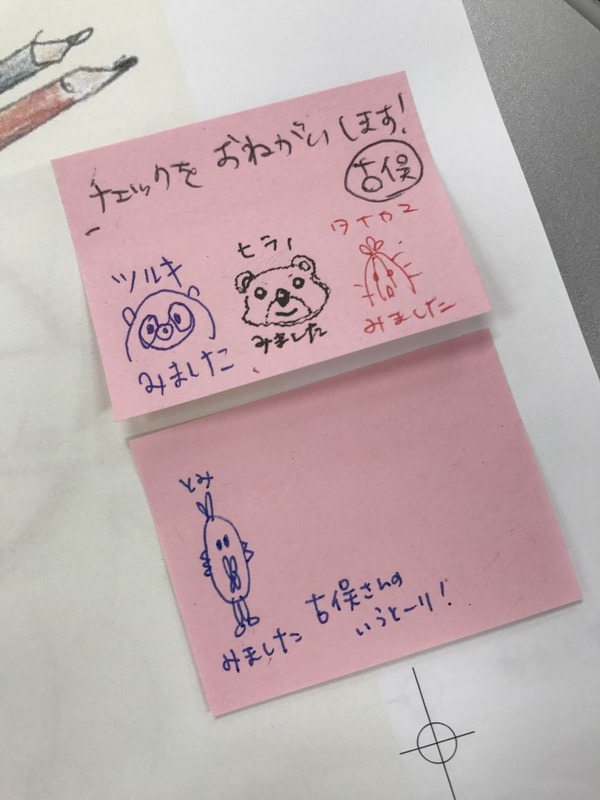 チェックをおねがいします!
古俣
ツルキ
みました
ヒラノ
みました
タナカマ
みました
とみ
みました
古俣さんの
いうとーり!